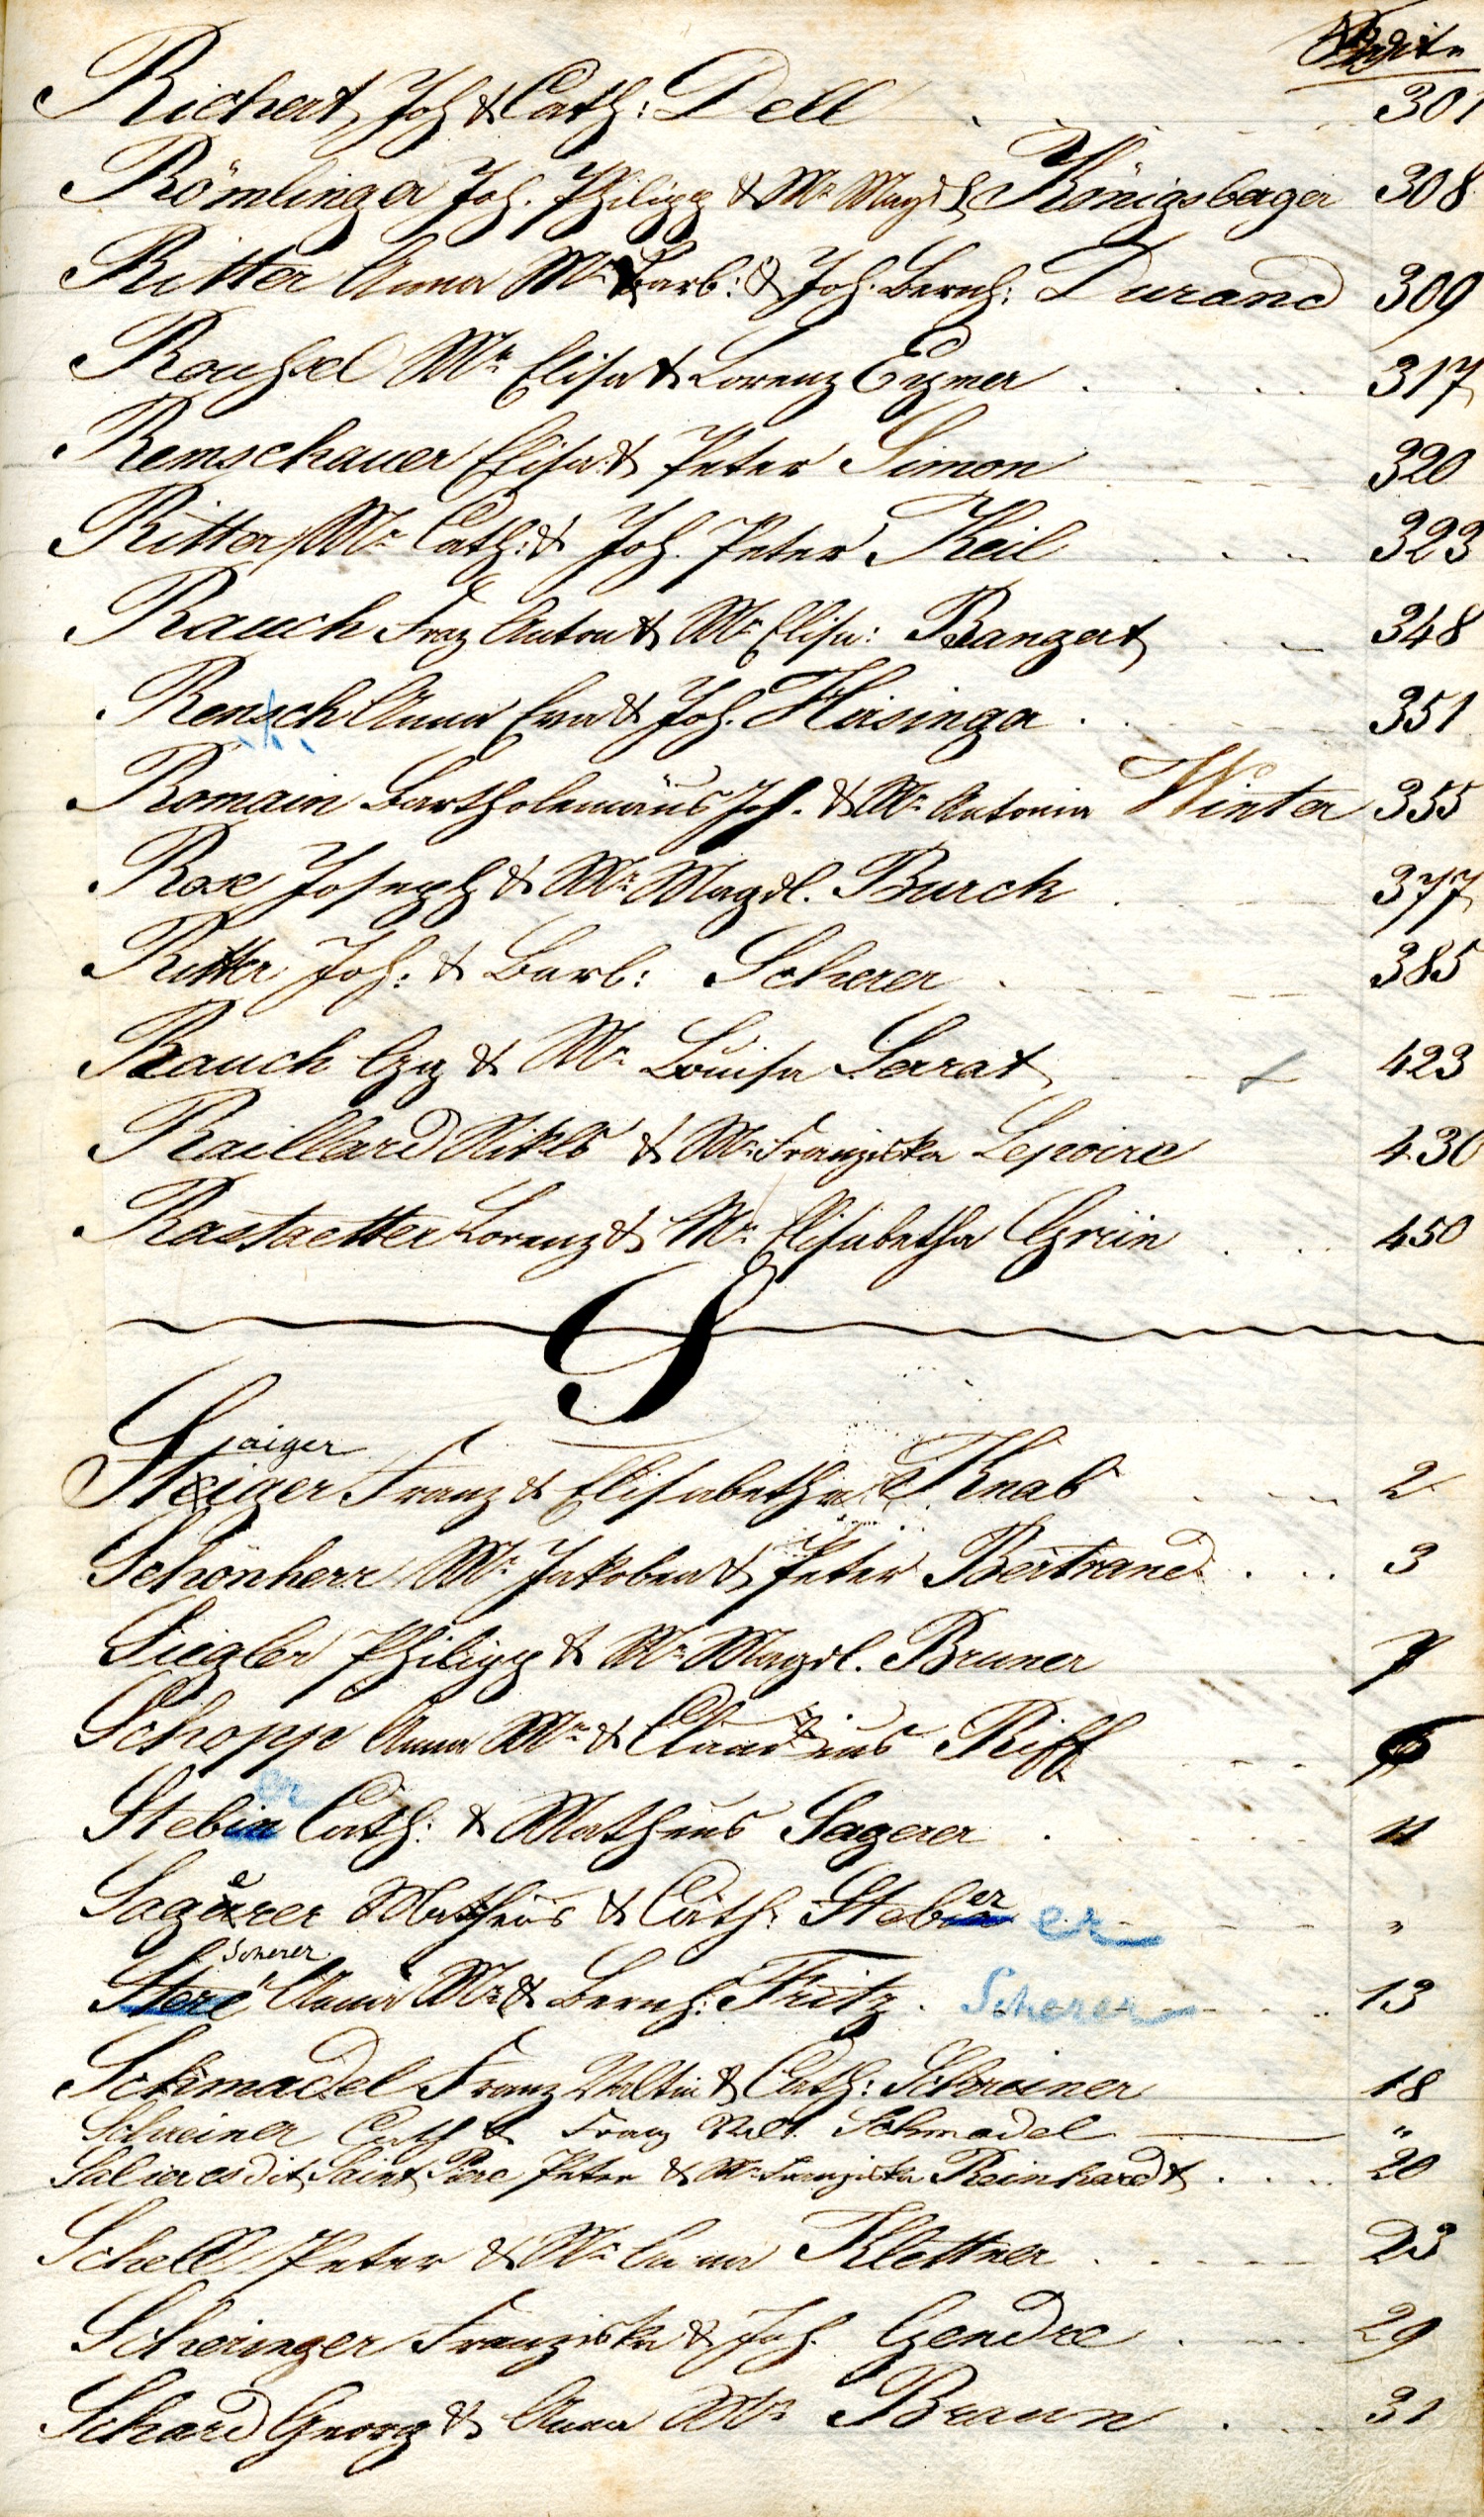 Seite
Richert Joh & Cath: Dell 301
Römlinger Joh. Philipp & Ma Magdl Königsberger 308
Ritter Anna Ma Barb: & Joh. Bernh: Durand 309
Ma Elisa & Lorenz Eymer 317
Remschauer Elisa: & Peter Simon 320
Ritter Ma Cath: & Joh. Peter Keil 323
Rauch Frz Anton & Ma Elisa: Bangert 348
Rensch Anna Eva & Joh. 351
Romain Bartholemäus Jos. & Ma Antonia Winter 355
Rose Joseph & Ma Magdl. Burck 377
Ritter Joh: & Barb: Scherer 385
Rauch Gg & Ma Louisa Serrat 423
Raillard Nikls & Ma Franziska Lepoire 430
Rastaetter Lorenz & Ma Elisabetha Grün 450
S
aiger
Steiger Franz & Elisabetha Knab 2
Schönherr Ma Jakobea & Peter Bertrand 3
Siegler Philipp & Ma Magdl. Bruner 7
Schopp Anna Ma & Riff
er
Stebin Cath: & Matheus Sagerer 11
e er
Sagurer Matheus & Cath: Stebin er "
Scherer
Steré Anna Ma & Bernh: Fritz. Scherer 13
Schmadel Franz Valtin & Cath: Schreiner 18
Schreiner Cath & Franz Valt. Schmadel "
Salieres dit Saint Pere Peter & Ma Franziska Reinhardt 20
Schell Peter & Ma Anna Klettner 23
Scheringer Franziska & Joh. Gendre 29
Schard Georg & Anna Ma Braun 31